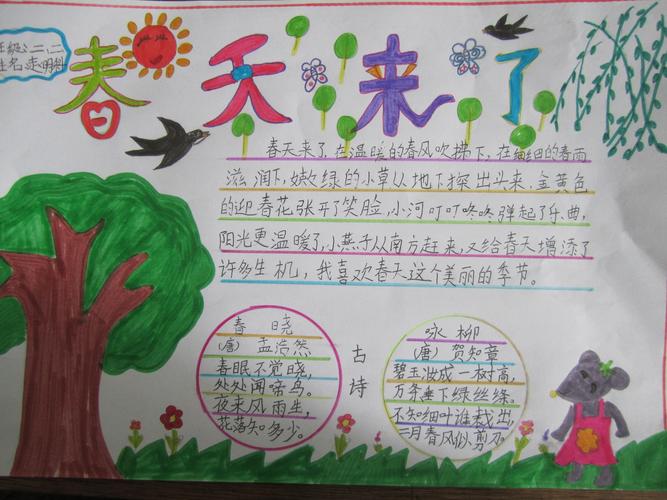 班级: 二、二
姓名: 走明科
春天来了
春天来了，在温暖的春风吹拂下，在细细的春雨
滋润下，嫩绿的小草从地下探出头来，金黄色
的迎春花张开了笑脸，小河叮叮咚咚弹起了乐曲，
阳光更温暖了，小燕子从南方赶来，又给春天增添了
许多生机，我喜欢春天这个美丽的季节。
古诗
春晓
(唐) 孟浩然
春眠不觉晓，
处处闻啼鸟。
夜来风雨生，
花落知多少。
咏柳
(唐) 贺知章
碧玉妆成一树高，
万条垂下绿丝绦。
不知细叶谁裁出，
二月春风似剪刀。